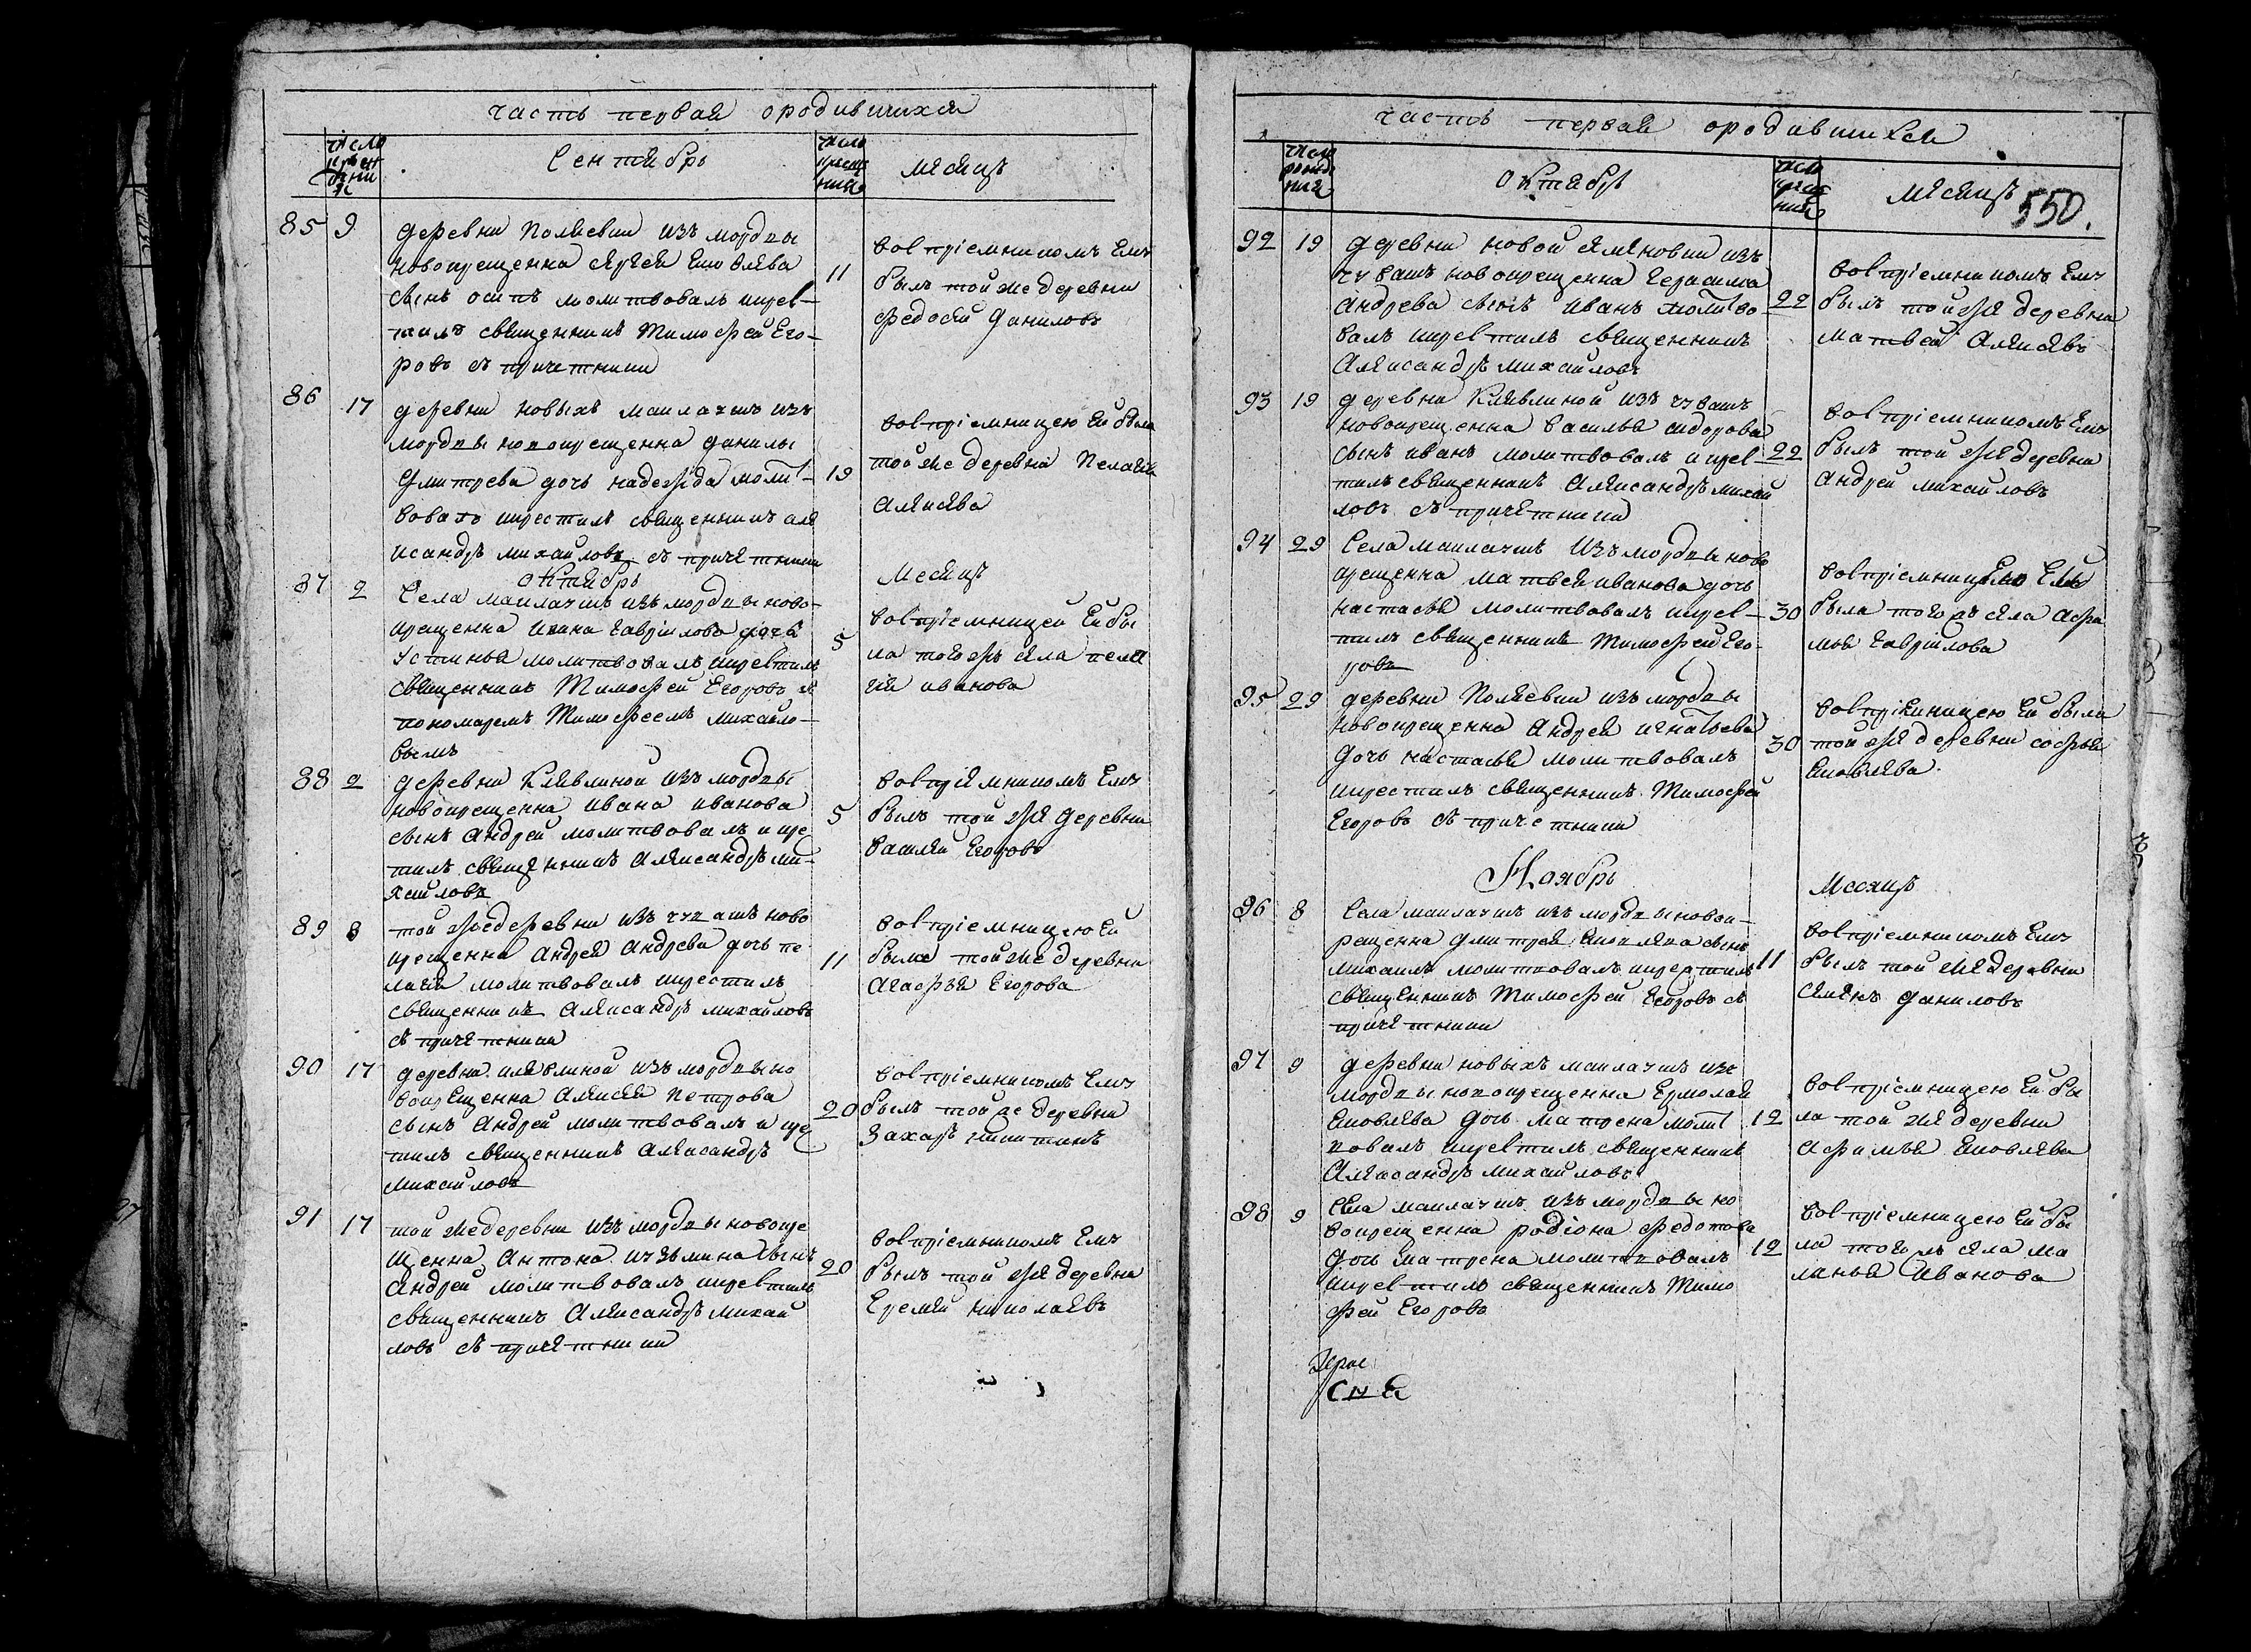 часть первая ородившихся
число рождения
Сентябрь
число крещения
месяцъ
85 9
деревни Полаевки изъ мордвы
новокрещенна Сергея Яковлева
сынъ осипъ молитвовалъ икрес-
тилъ священникъ Тимофей Его-
ровъ съ причетники
11
восприемникомъ Ему
былъ той же деревни
федосей Даниловъ
86 17
деревни новыхъ маклаушъ изъ
мордвы новокрещенна данилы
Дмитрева дочь надежда молит-
вовалъ икрестилъ священникъ але
ксандръ михайловъ съ причетники
19
восприемницею Ей была
той же деревни Пелагея
Алексева
октябрь
месяцъ
87 2
Села маклаушъ изъ мордвы ново-
крещенна Ивана гаврилова дочь
Устинья молитвовалъ икрестилъ
священникъ Тимофей Егоровъ с
пономаремъ Тимофеемъ михайло-
вымъ
5
восприемницей Ей бы
ла тогожъ села пела
гея иванова
88 2
деревни Клявлиной изъ мордвы
новокрещенна ивана иванова
сынъ андрей молитвовалъ и крес
тилъ священникъ Александръ ми-
хайловъ
5
восприемникомъ Ему
былъ той же деревни
василей Егоровъ
89 8
той жедеревни изъ чувашъ ново
крещенна андрея андрева дочь пе
лагея молитвовалъ икрестилъ
священникъ Александръ михайловъ
съ причетники
11
восприемницею Ей
была той же деревни
Агафья Егорова
90 17
деревни клявлиной изъ мордвы но
вокрещенна Алексея петрова
сынъ андрей молитвовалъ и крес
тилъ священникъ александръ
михайловъ
20
восприемникомъ Ему
былъ той же деревни
Захаръ никитинъ
91 17
той жедеревни изъ мордвы новокре
щенна Антона кузьмина сынъ
андрей молитвовалъ икрестилъ
священникъ Александръ михай
ловъ съ причетники
20
восприемникомъ Ему
былъ той же деревни
Еремей николаевъ
часть первая ородившихся
число рождения
октябрь
число крещения
месяцъ
550.
92 19
деревни новой семеновки изъ
чувашъ новокрещенна герасима
андрева сынъ иванъ молитво-
валъ икрестилъ священникъ
Александръ михайловъ
22
восприемникомъ Ему
былъ той же деревни
матвей Алексевъ
93 19
деревни Клявлиной изъ чувашъ
новокрещенна василья сидорова
сынъ иванъ молитвовалъ и крес
тилъ священникъ александръ михай
ловъ съ причетники
22
восприемникомъ Ему
былъ той же деревни
андрей михайловъ
94 29
Села маклаушъ Изъ мордвы ново
крещенна матвея иванова дочь
настасья молитвовалъ икрес-
тилъ священникъ Тимофей Его-
ровъ
30
восприемницею Ей
была тогожъ села Афи
мья гаврилова
95 29
деревни Полаевки изъ мордвы
новокрещенна Андрея игнатьева
дочь настасья молитвовалъ
икрестилъ священникъ Тимофей
Егоровъ съ причетники
30
восприемницею Ей была
той же деревни софья
Яковлева.
Ноябрь
Месяцъ
96 8
Села маклаушъ изъ мордвы новок-
рещенна дмитрея яковлева сынъ
михаилъ молитвовалъ икрестилъ
священникъ Тимофей Егоровъ съ
причетники
11
восприемникомъ Ему
былъ той же деревни
семенъ даниловъ
97 9
деревни новыхъ маклаушъ изъ
мордвы новокрещенна Ермолая
яковлева дочь матрена молит
вовалъ икрестилъ священникъ
Александръ михайловъ
12
восприемницею Ей бы
ла той же деревни
Афимья Яковлева
98 9
Села маклаушъ изъ мордвы но
вокрещенна родиона федотова
дочь матрена молитвовалъ
икрестилъ священникъ Тимо
фей Егоровъ
12
восприемницею Ей бы
ла тогожъ села ма
ланья Иванова